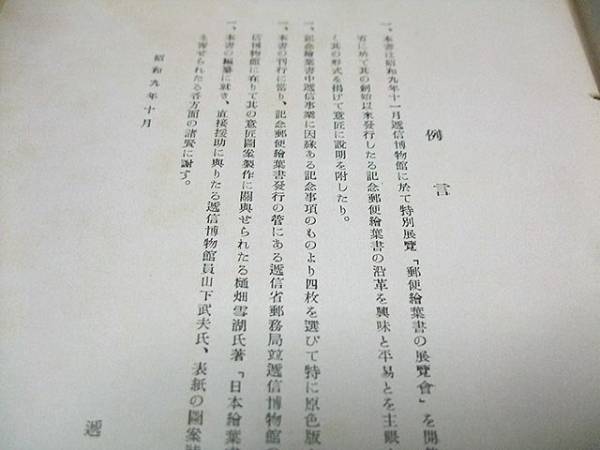 例言
一、本書は昭和九年十一月遞信博物館に於て特別展覽「郵便繪葉書の展覽會」を開
省に於て其の創始以來發行したる記念郵便繪葉書の沿革を興味と平易とを主眼
し其の形式を揭げて意匠に說明を附したり。
一、記念繪葉書中遞信事業に因緣ある記念事項のものより四枚を選びて特に原色版
一、本書の刊行に當り、記念郵便繪葉書發行の管にある遞信省郵務局竝遞信博物館
信博物館に在りて其の意匠圖案製作に關與せられたる樋畑雪湖氏著「日本繪葉書
一、本書の編纂に就き、直接援助に與りたる遞信博物館員山下武夫氏、表紙の圖案
を寄せられたる各方面の諸賢に謝す。
昭和九年十月
遞